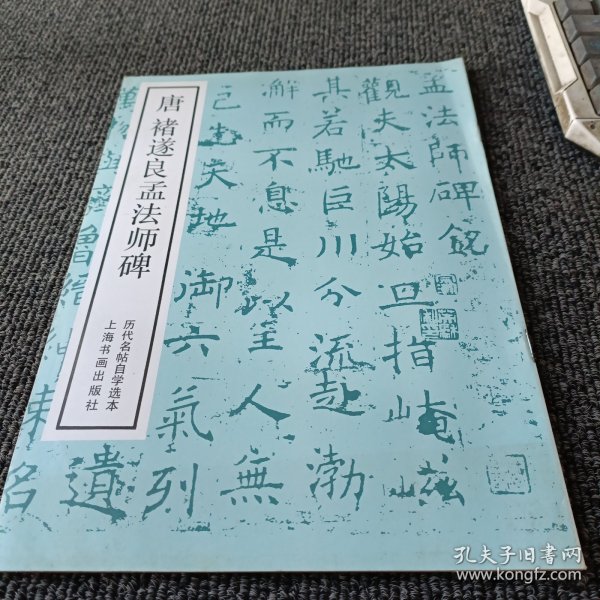 唐 褚遂良孟法师碑
历代名帖自学选本
上海书画出版社
孟法师碑铭
观夫太阳始旦指崦兹
其若驰巨川分流赴渤
解而不息是以至人无
已
天地
御六气
列
遗
名
孔夫子旧书网
www.kongfz.com